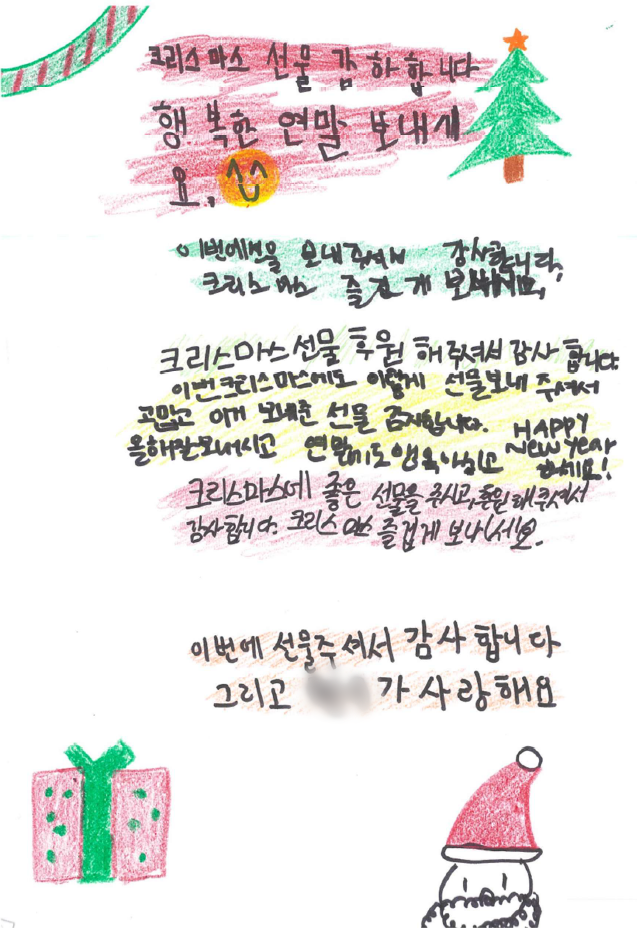 크리스마스 선물 감하합니다
행복한 연말 보내세
요,
이번에 선물 보내주셔서 감사합니다,
크리스마스 즐겁게 보내세요,
크리스마스 선물 후원 해주셔서 감사합니다
이번크리스마스에도 이렇게 선물보내 주셔서
고맙고 이거 보내준 선물 감사합니다. HAPPY
올해 잘보내시고 연말 New year
크리스마스에 좋은 선물을 주시고, 후원 해주셔서
감사합니다. 크리스마스 즐겁게 보내세요.
이번에 선물주셔서 감사합니다
그리고 가 사랑해요